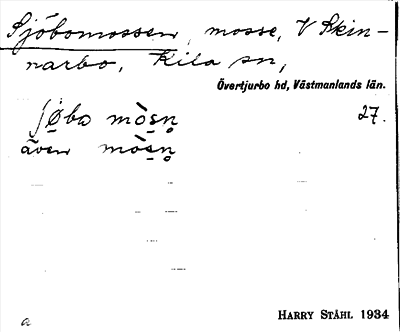 Sjöbomossen, mosse, V Skin-
narbo, Kila sn,
Övertjurbo hd, Västmanlands län.
ʃø̱ba mòs̱n̥ 27.
även mòs̱n̥
a
HARRY STÅHL 1934